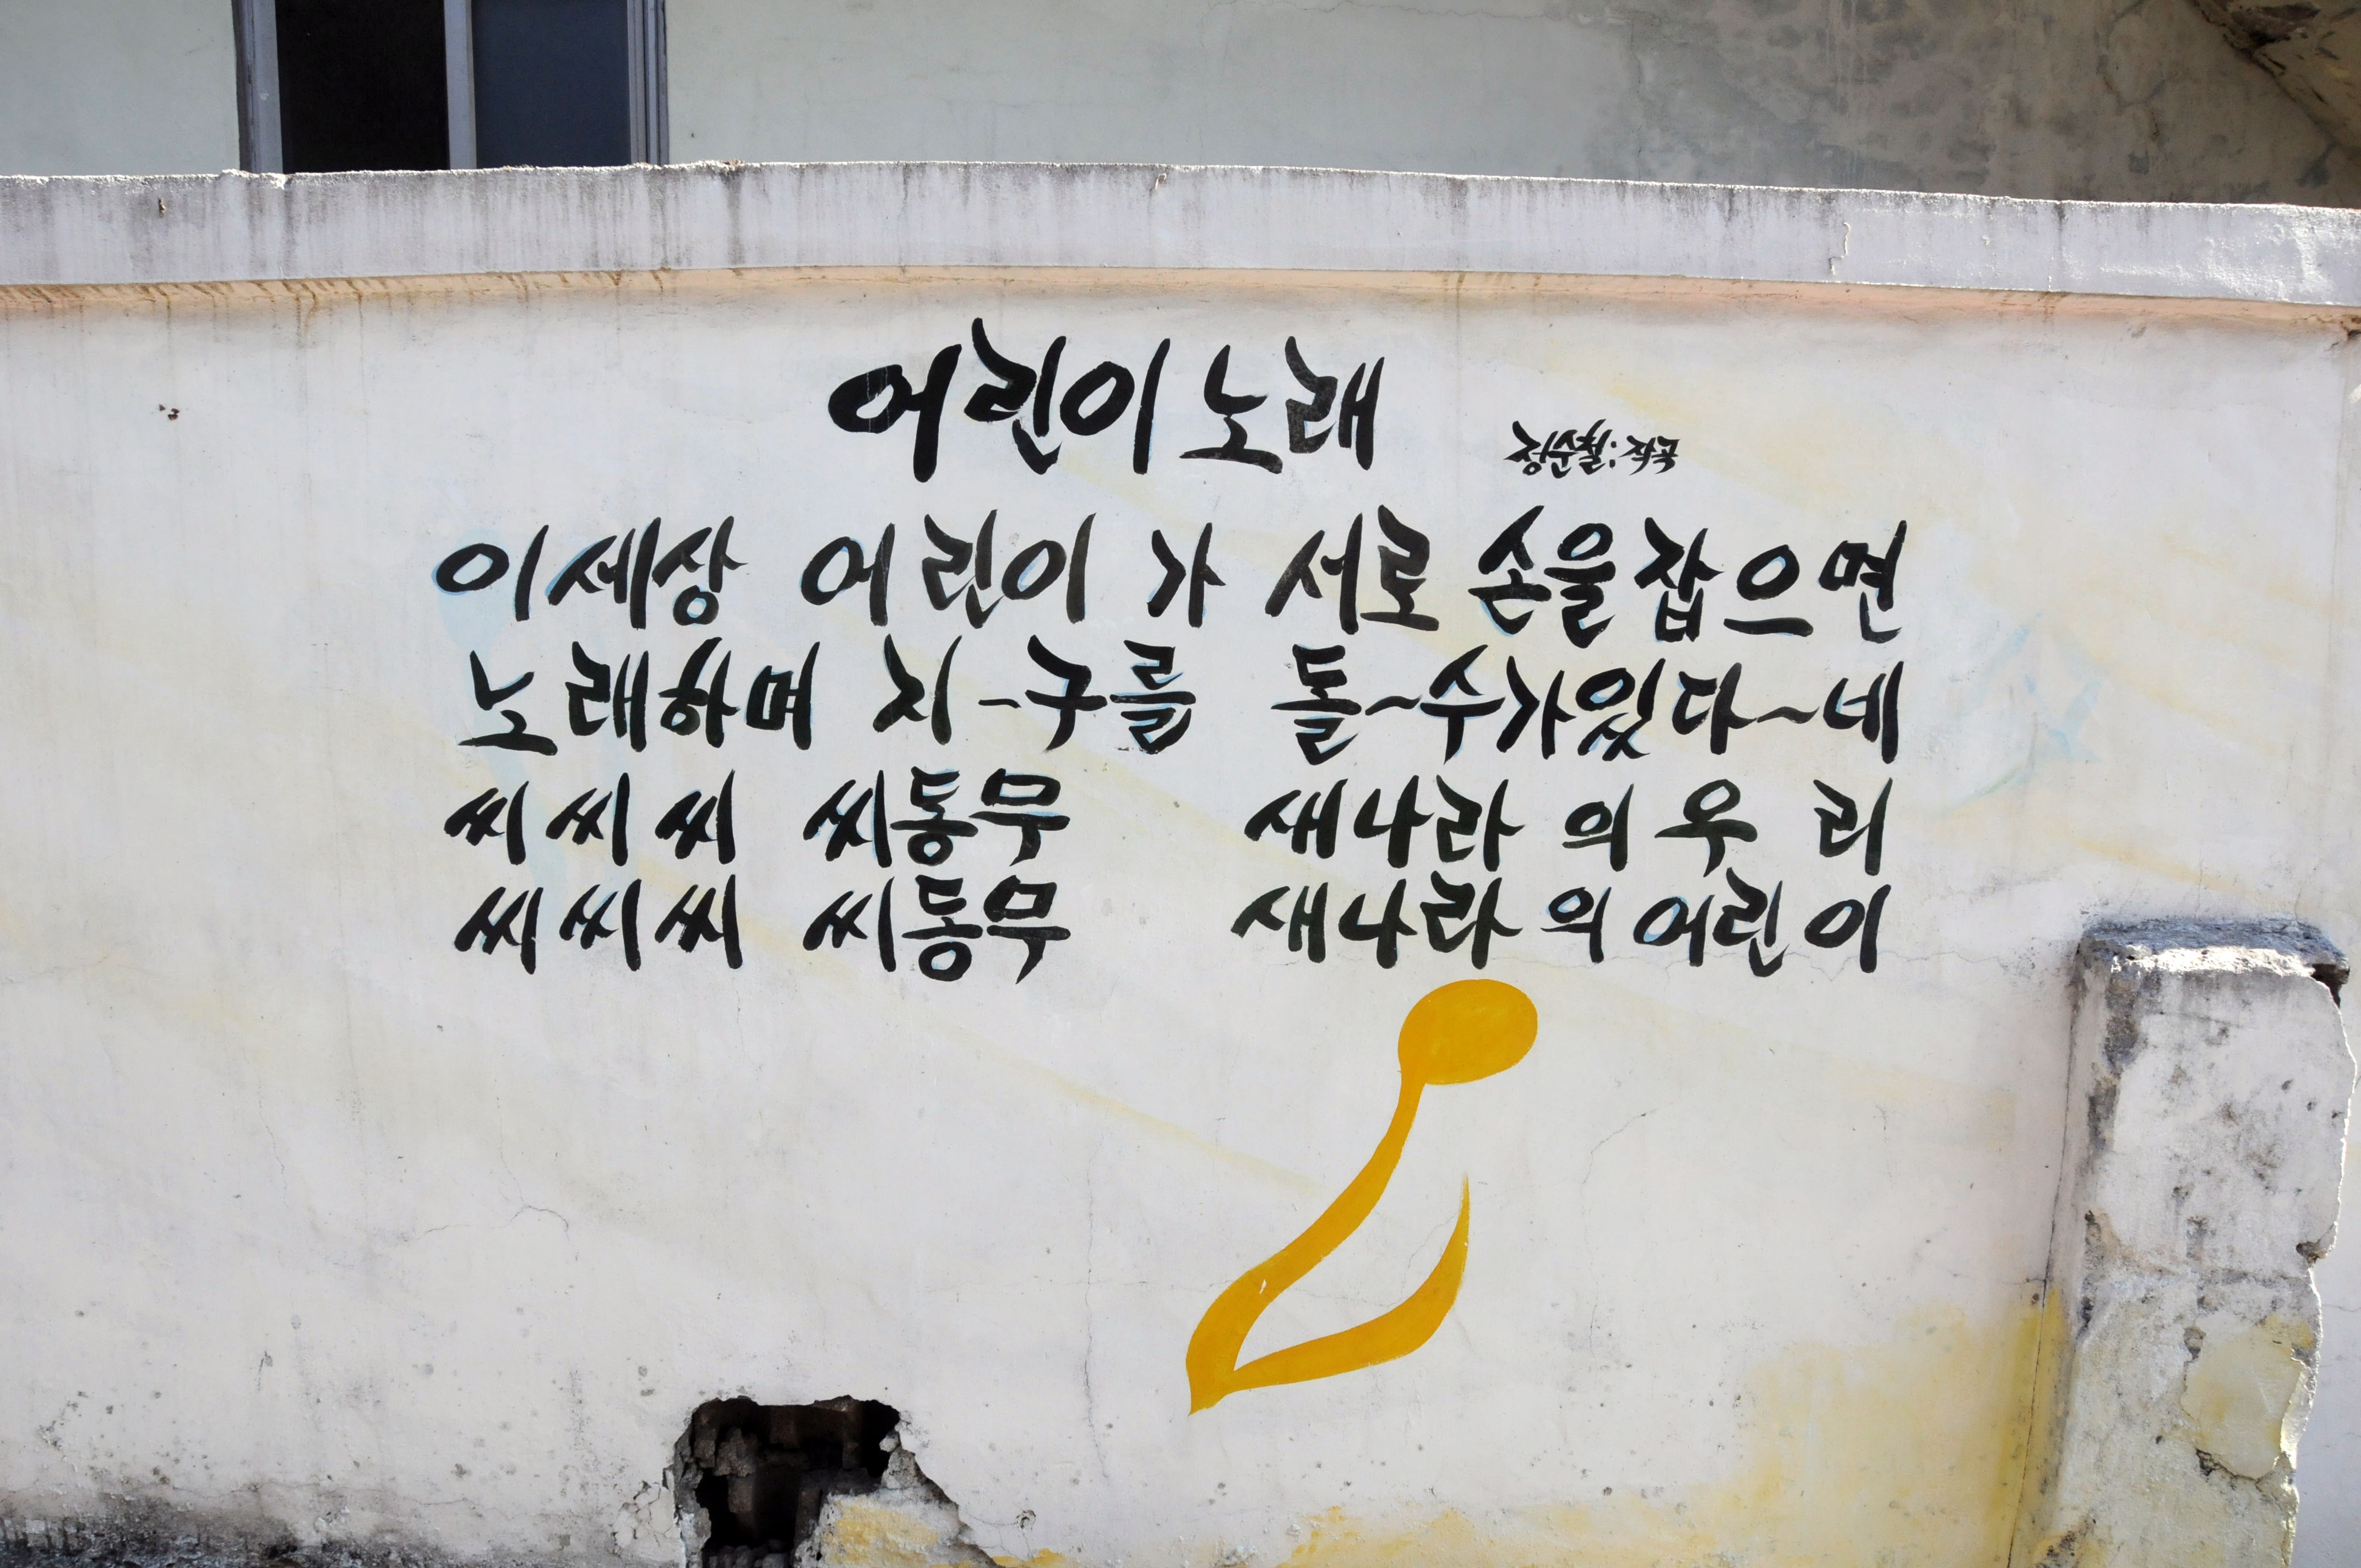 어린이 노래
정순철:작곡
이세상 어린이가 서로 손을잡으면
노래하며 지-구를 돌~수가있다~네
씨씨씨 씨동무 새나라의우리
씨씨씨 씨동무 새나라의어린이